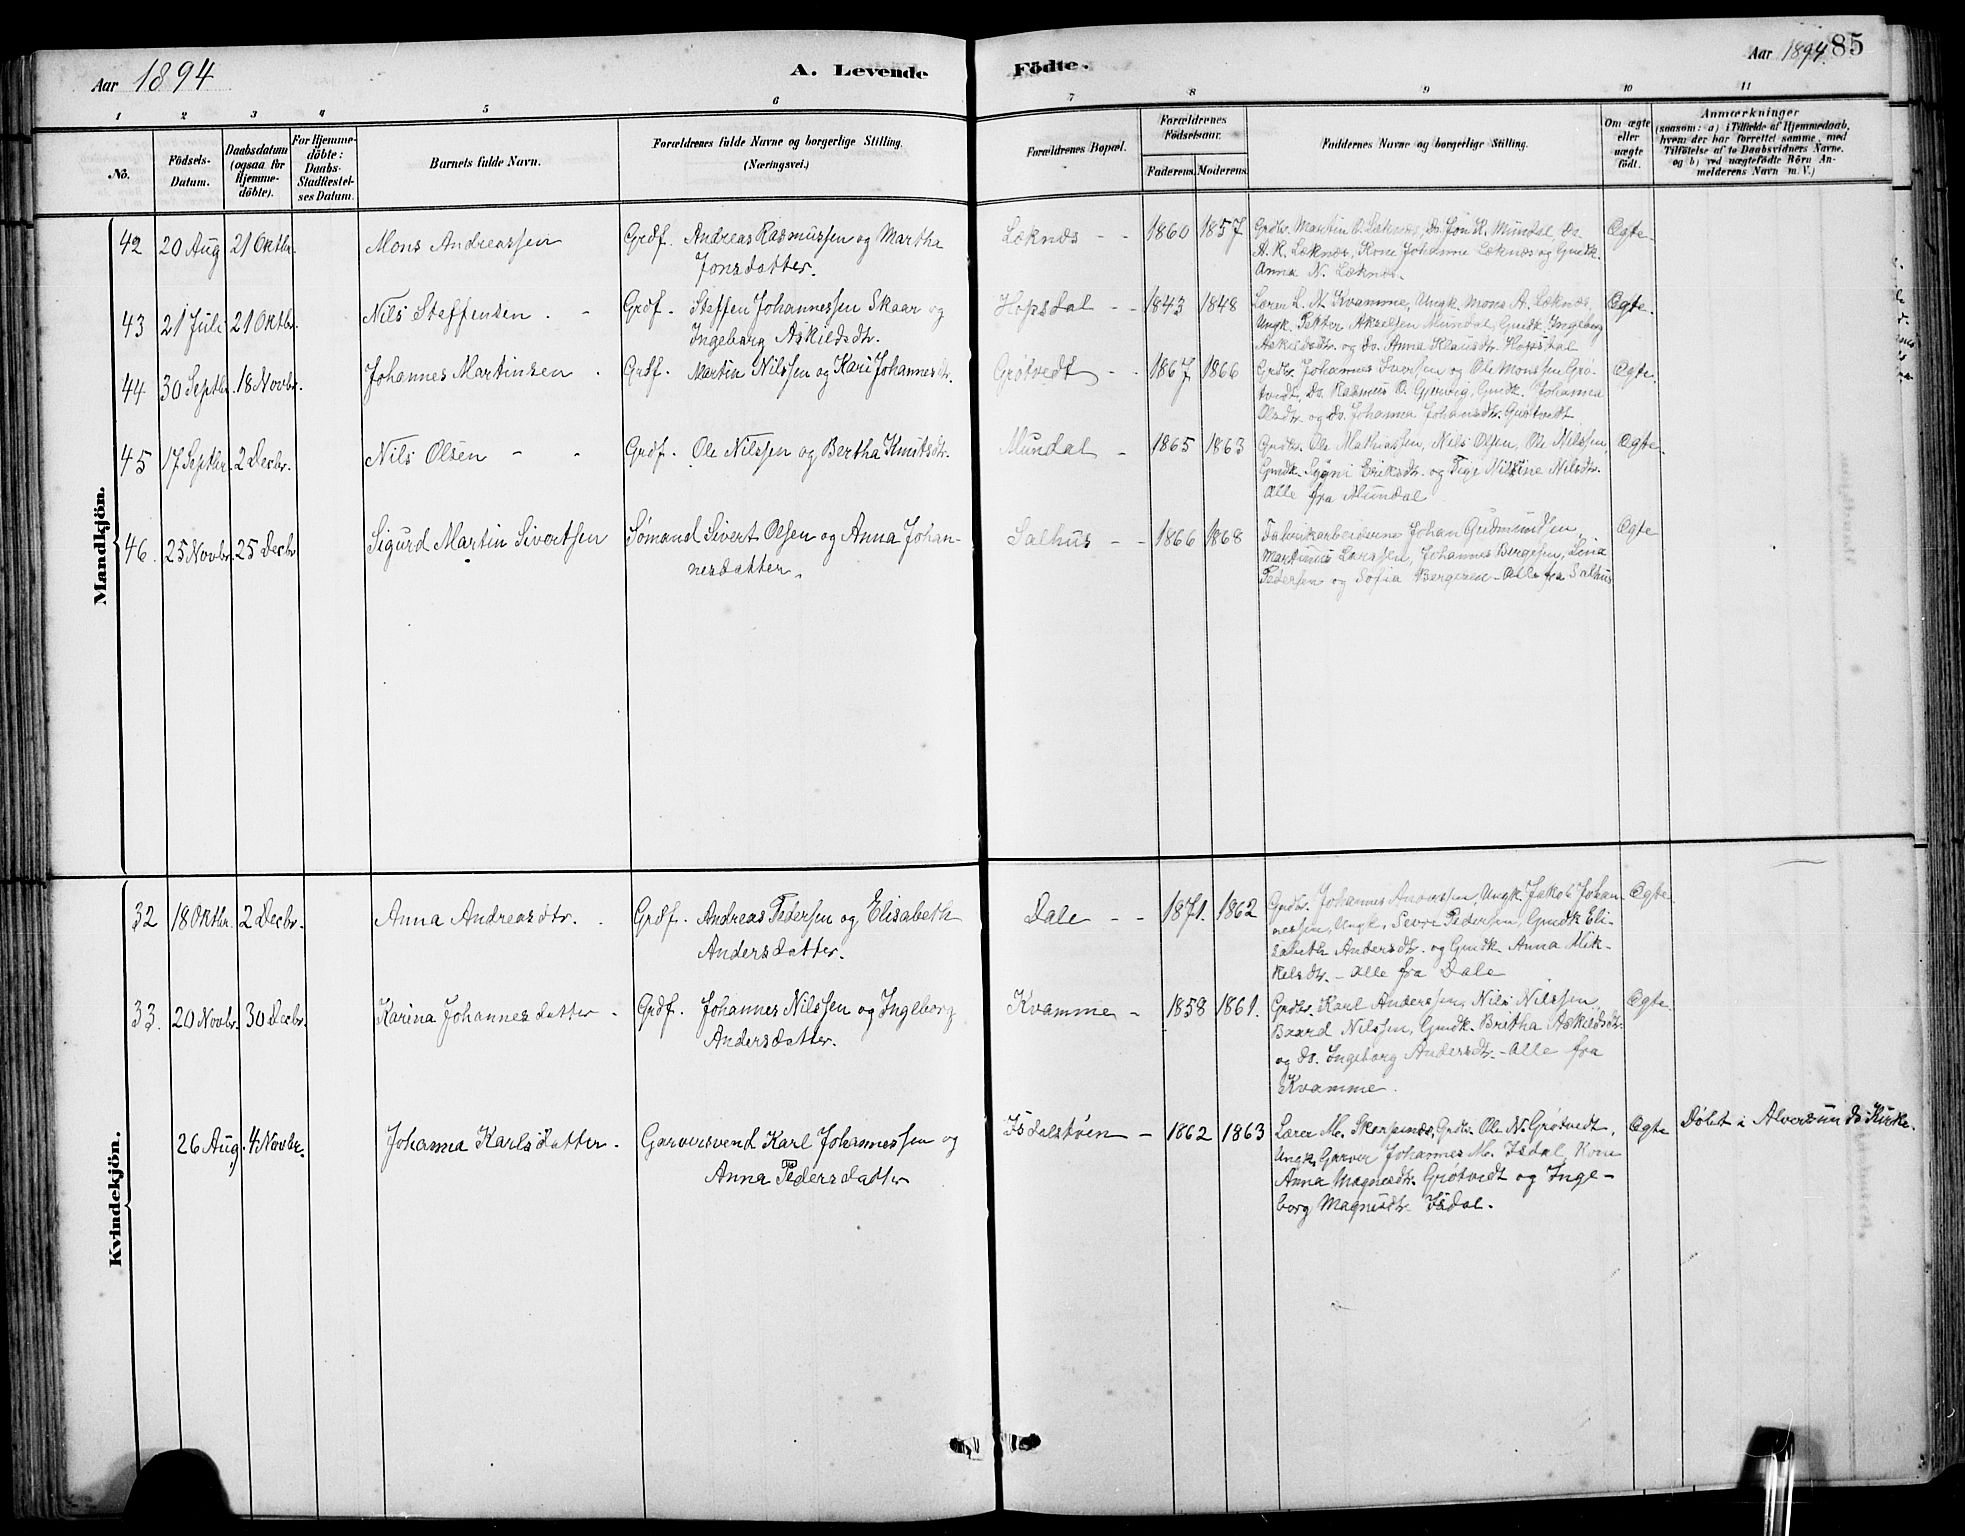 Aar 1894
A. Levende
Födte.
Aar 1894. 85
1 2 3 4 5 6 7 8 9 10 11
No.
Födsels-
Datum.
Daabsdatum
(ogsaa for
Hjemme-
döbte).
For Hjemme-
döbte:
Daabs-
Stadfæstel-
ses Datum.
Barnets fulde Navn.
Forældrenes fulde Navne og borgerlige Stilling.
(Næringsvei.)
Forældrenes Bopæl.
Forældrenes
Födselsaar.
Faderens. Moderens.
Faddernes Navne og borgerlige Stilling.
Om ægte
eller
uægte
födt.
Anmærkninger
(saasom: a) i Tilfælde af Hjemmedaab,
hvem der har forrettet samme, med
Tilföielse af to Daabsvidners Navne,
og b) ved uægtefödte Börn An-
melderens Navn m. V.)
Mandkjön.
42 20 Aug 21 Oktbr. Mons Andreassen Grdf. Andreas Rasmussen og Martha
Jonsdatter.
Læknæs - - 1860 1857 Grdbr. Martin O. Læknæs, do. Jon K. Mundal, do.
A. R. Læknæs, Kone Johanne Læknæs og Gmdk.
Anna N. Læknæs.
Ægte
43 21 Juli 21 Oktbr. Nils Steffensen. - Grdf. Steffen Johannessen Skaar og
Ingeborg Askildsdtr.
Hopsdal - - 1843 1848 Lærer L. N. Kvamme, Ungk. Mons A. Læknæs,
Ungk. Petter Akselsen Mundal, Gmdk. Ingeborg
Askildsdtr. og do. Anna Klausdtr. Hopsdal
Ægte.
44 30 Septbr. 18 Novbr. Johannes Martinsen. Grdf. Martin Nilssen og Kari Johannesdtr.
Grøtvedt - . 1867 1866 Grdbr. Johannes Iversen og Ole Monssen Grø-
tvedt, do. Rasmus O. Gjervig, Gmdk. Johanna
Olsdtr. og do. Johanna Johansdtr. Grøtvedt
Ægte.
45 17 Septbr. 2 Decbr. Nils Olsen - - Grdf. Ole Nilssen og Bertha Knutsdtr.
Mundal - 1865 1863 Grdbr. Ole Mathiassen, Nils Olsen, Ole Nilssen,
Gmdk. Sygni Eriksdtr. og Pige Nilsine Nilsdtr.
Alle fra Mundal
Ægte.
46. 25 Novbr. 25 Decbr Sigurd Martin Sivertsen Sømand Sivert Olsen og Anna Johan-
nesdatter.
Salhus - - 1866 1868 Fabrikarbeiderne Johan Gudmundsen,
Martinus Larssen, Johannes Bergesen, Lina
Pedersen og Sofia Bergesen - Alle fra Salhus
Ægte
Kvindekjön.
32 18 Oktbr. 2 Decbr. Anna Andreasdtr. . Grdf. Andreas Pedersen og Elisabeth
Andersdatter.
Dale - - 1871. 1862 Grdbr. Johannes Andersen, Ungk. Jakob Johan-
nessen, Ungk. Pedersen, Gmdk Eli-
sabeth Andersdtr. og Gmdk. Anna Mik-
kelsdtr. - Alle fra Dale
Ægte
33. 20 Novbr. 30 Decbr. Karina Johannesdatter - Grdf. Johannes Nilssen og Ingeborg
Andersdatter.
Kvamme - 1858 1861. Grdbr. Karl Anderssen, Nils Nilssen,
Baard Nilssen, Gmdk. Britha Askildsdtr
og do. Ingeborg Andersdtr. - Alle fra
Kvamme.
Ægte.
26 Aug. 4 Novbr. Johanna Karlsdatter. Garversvend Karl Johannessen og
Anna Pedersdatter
Isdalstøen - 1862 1863 Lærer M. Skarpenæs, Grdbr. Ole N. Grøtvedt,
Ungk. Garver Johannes M. Isdal, Kone
Anna Magnesdtr. Grøtvedt og Inge-
borg Magnesdtr. Isdal.
Ægte Døbt i Alversunds Kirke.